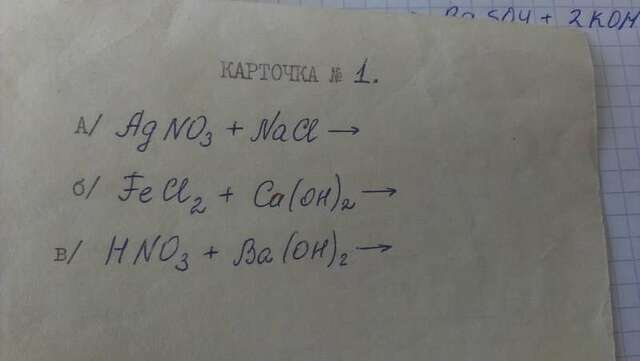 BaSO4 + 2KOH
КАРТОЧКА № 1.
А/ AgNO₃ + NaCl →
б/ FeCl₂ + Ca(OH)₂ →
в/ HNO₃ + Ba(OH)₂ →